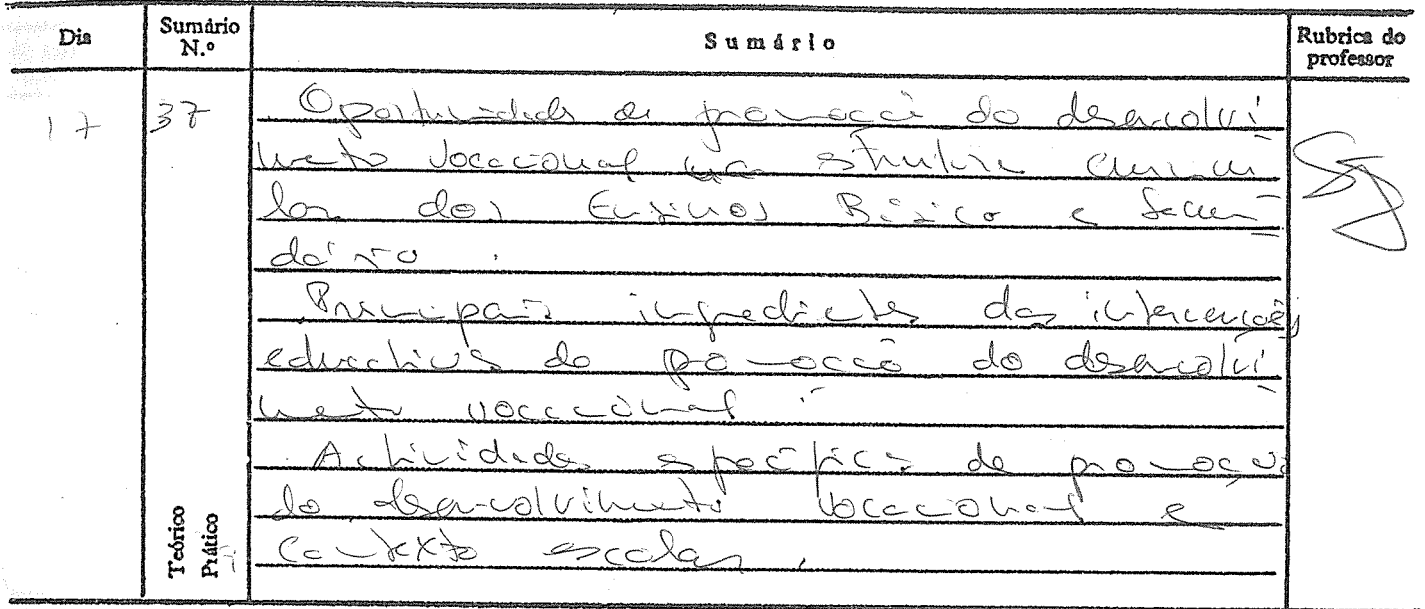 Dia Sumário N.º Sumário Rubrica do professor
17 37 Oportunidades de promoção do desenvolvi
mento vocacional na estrutura curricu
lar dos Ensinos Básico e Secun
dário .
Principais ingredientes das intervenções
educativas de promoção do desenvolvi
mento vocacional .
Actividades específicas de promoção
do desenvolvimento vocacional e
contexto escolar .
Teórico
Prático